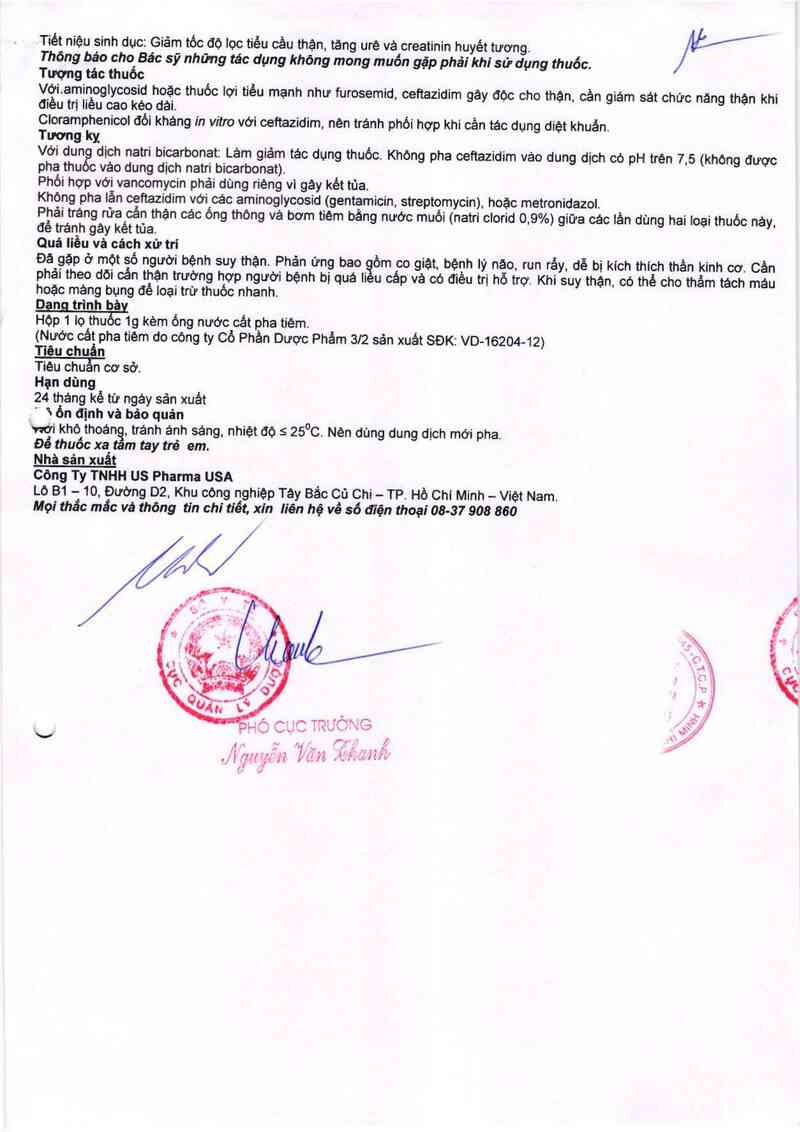 Tiết niệu sinh dục: Giảm tốc độ lọc tiểu cầu thận, tăng urê và creatinin huyết tương.
Thông báo cho Bác sỹ những tác dụng không mong muốn gặp phải khi sử dụng thuốc.
Tương tác thuốc
Với.aminoglycosid hoặc thuốc lợi tiểu mạnh như furosemid, ceftazidim gây độc cho thận, cần giám sát chức năng thận khi
điều trị liều cao kéo dài.
Cloramphenicol đối kháng in vitro với ceftazidim, nên tránh phối hợp khi cần tác dụng diệt khuẩn.
Tương kỵ
Với dung dịch natri bicarbonat: Làm giảm tác dụng thuốc. Không pha ceftazidim vào dung dịch có pH trên 7,5 (không được
pha thuốc vào dung dịch natri bicarbonat).
Phối hợp với vancomycin phải dùng riêng vì gây kết tủa.
Không pha lẫn ceftazidim với các aminoglycosid (gentamicin, streptomycin), hoặc metronidazol.
Phải tráng rửa cẩn thận các ống thông và bơm tiêm bằng nước muối (natri clorid 0,9%) giữa các lần dùng hai loại thuốc này,
để tránh gây kết tủa.
Quá liều và cách xử trí
Đã gặp ở một số người bệnh suy thận. Phản ứng bao gồm co giật, bệnh lý não, run rẩy, dễ bị kích thích thần kinh cơ. Cần
phải theo dõi cẩn thận trường hợp người bệnh bị quá liều cấp và có điều trị hỗ trợ. Khi suy thận, có thể cho thẩm tách máu
hoặc màng bụng để loại trừ thuốc nhanh.
Dạng trình bày
Hộp 1 lọ thuốc 1g kèm ống nước cất pha tiêm.
(Nước cất pha tiêm do công ty Cổ Phần Dược Phẩm 3/2 sản xuất SĐK: VD-16204-12)
Tiêu chuẩn
Tiêu chuẩn cơ sở.
Hạn dùng
24 tháng kể từ ngày sản xuất
ổn định và bảo quản
khô thoáng, tránh ánh sáng, nhiệt độ ≤ 25⁰C. Nên dùng dung dịch mới pha.
Để thuốc xa tầm tay trẻ em.
Nhà sản xuất
Công Ty TNHH US Pharma USA
Lô B1 – 10, Đường D2, Khu công nghiệp Tây Bắc Củ Chi – TP. Hồ Chí Minh – Việt Nam.
Mọi thắc mắc và thông tin chi tiết, xin liên hệ về số điện thoại 08-37 908 860
CỤC QUẢN LÝ DƯỢC
PHÓ CỤC TRƯỞNG
Nguyễn Văn Thanh